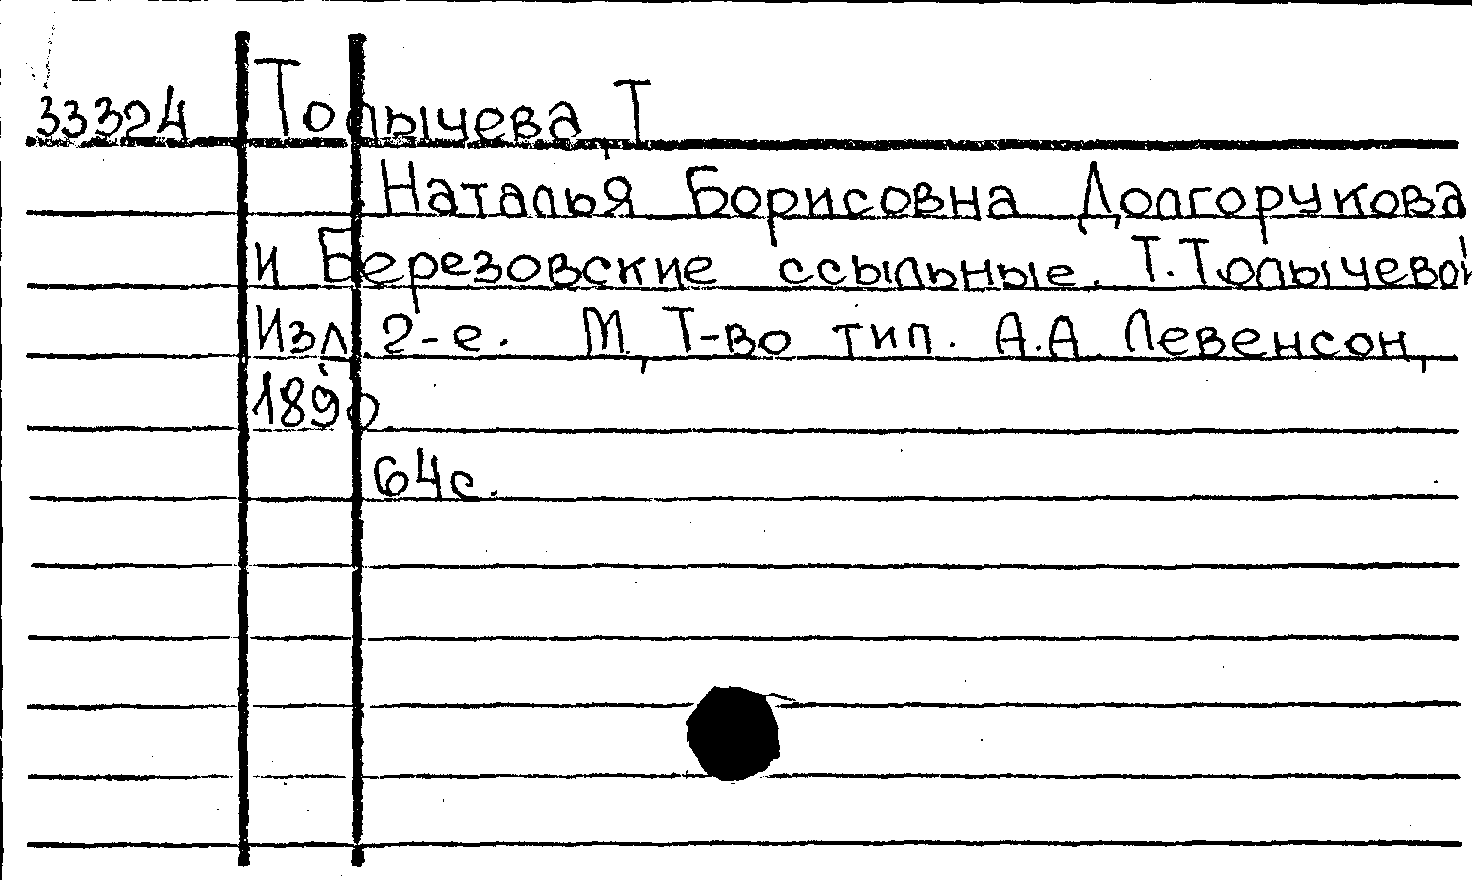 33324 Толычева, Т
Наталья Борисовна Долгорукова
и Березовские ссыльные. Т. Толычевой
Изд. 2-е. М, Т-во тип. А.А. Левенсон,
1890
64с.